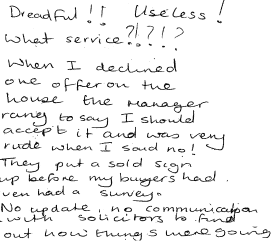 Dreadful!! Useless!
What service?!?!?
When I declined
one offer on the
house the manager
rang to say I should
accept it and was very
rude when I said no!
They put a sold sign
up before my buyers had
ven had a survey.
No update, no communication
with solicitors to find
out how things were going